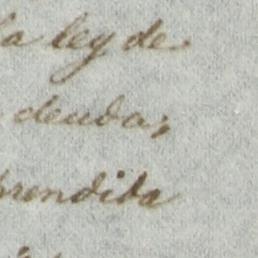 la ley de
deuda;
prendida